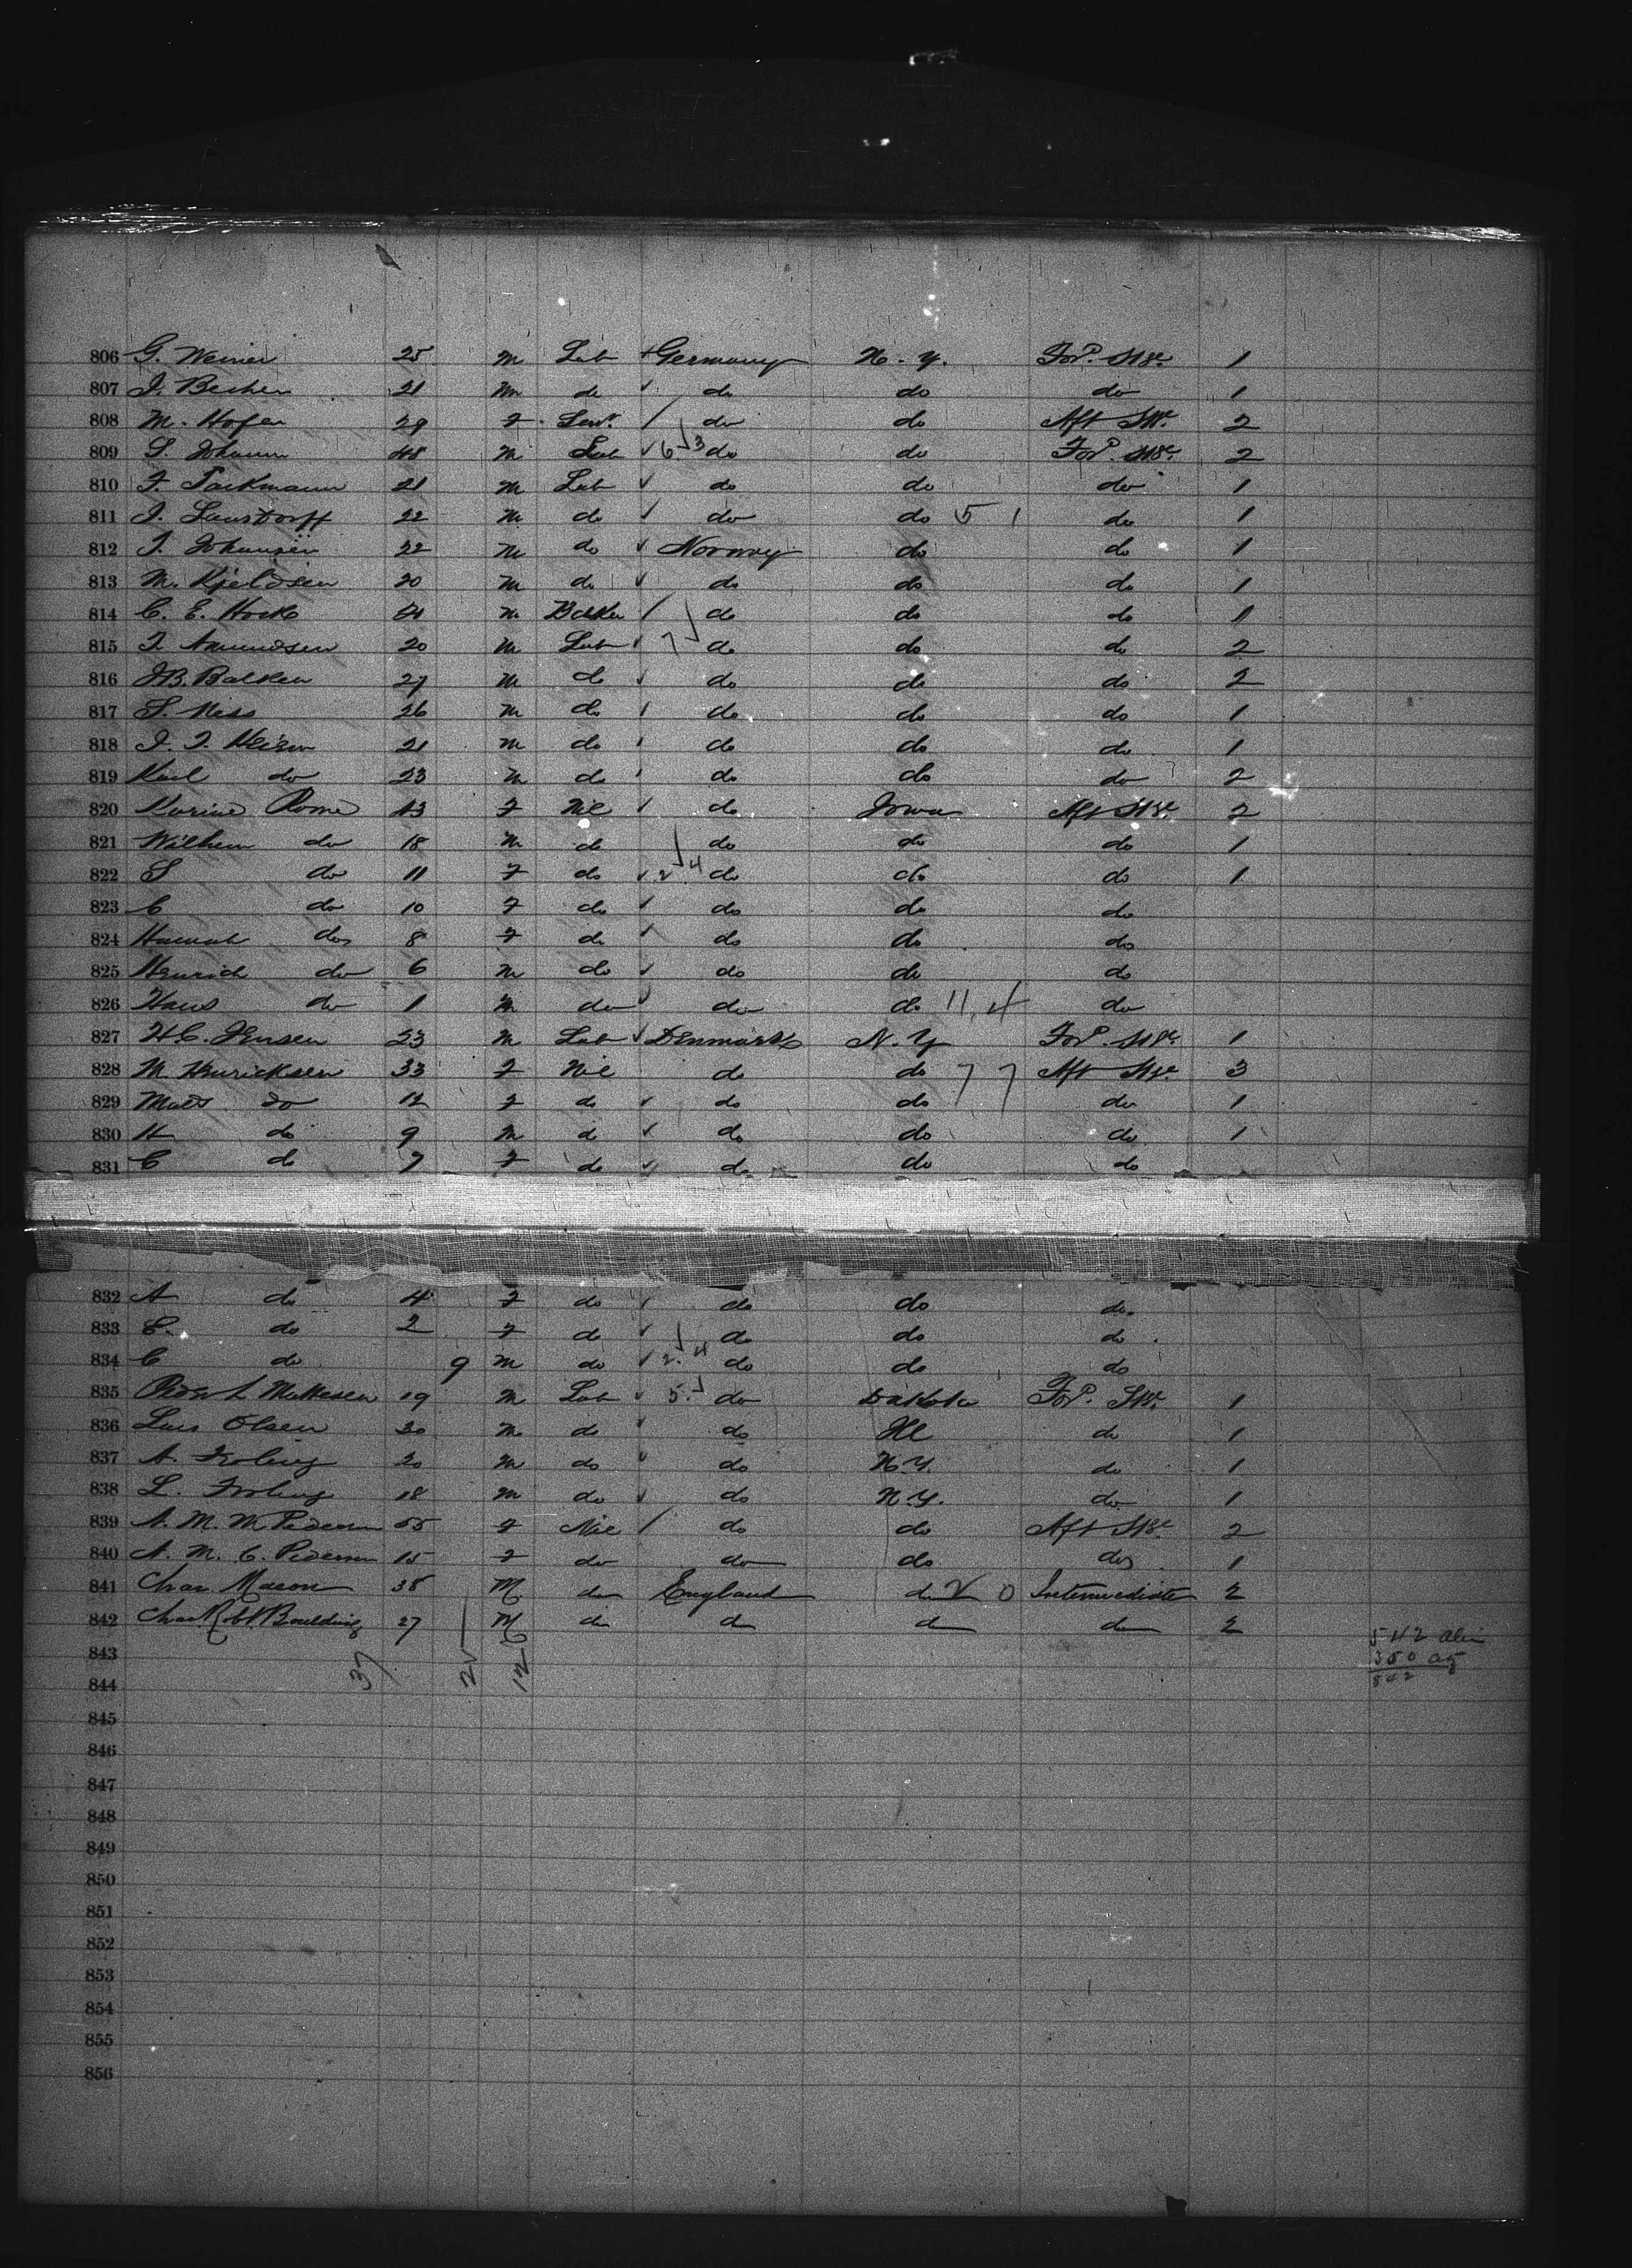 806 G. Weiner 25 m Lab Germany N.Y. For'd. Stge. 1
807 J. Becher 21 m do do do do 1
808 M. Hofer 29 f Serv. do do Aft Stge. 2
809 S. Johann 48 m Lab 6 3 do do For'd. Stge. 2
810 F. Packmann 21 m Lab do do do 1
811 J. 22 m do do do 5 1 do 1
812 J. Johansen 22 m do Norway do do 1
813 M. Kjeldsen 20 m do do do do 1
814 C. E. m do do do 1
815 T. Amundsen 20 m Lab 7 do do do 2
816 J.B. Balken 27 m do do do do 2
817 S. Ness 26 m do do do do 1
818 J. J. 21 m do do do do 1
819 Karl do 23 m do do do do 2
820 Karine 43 f Nil do Iowa Aft Stge. 2
821 Wilhem do 18 m do do do do 1
822 S do 11 f do 2 4 do do do 1
823 C do 10 f do do do do
824 Hannah do 8 f do do do do
825 Henrich do 6 m do do do do
826 Hans do 1 m do do do 11, 4 do
827 H.C. Jensen 23 m Lab Denmark N.Y For'd. Stge. 1
828 M. Henricksen 33 f Nil do do 7 7 Aft Stge. 3
829 do 12 f do do do do 1
830 H do 9 m do do do do 1
831 C do 7 f do do do do
832 A do 4 f do do do do
833 E. do 2 f do do do do
834 C do 9 m do 2. 4 do do do
835 Peder L 19 m Lab 5. do Dakota For'd. Stge. 1
836 Lars Olsen 20 m do do Ill do 1
837 A. Froling 20 m do do N.Y. do 1
838 L. Froling 18 m do do N.Y. do 1
839 A. M. M Pedersen 55 f Nil do do Aft Stge. 2
840 A. M. C. Pedersen 15 f do do do do 1
841 Chas. Mason 38 M do England do 2 0 Intermediate 2
842 Boulding 27 M do do do do 2
542
843 37 25 12
844 842
845
846
847
848
849
850
851
852
853
854
855
856